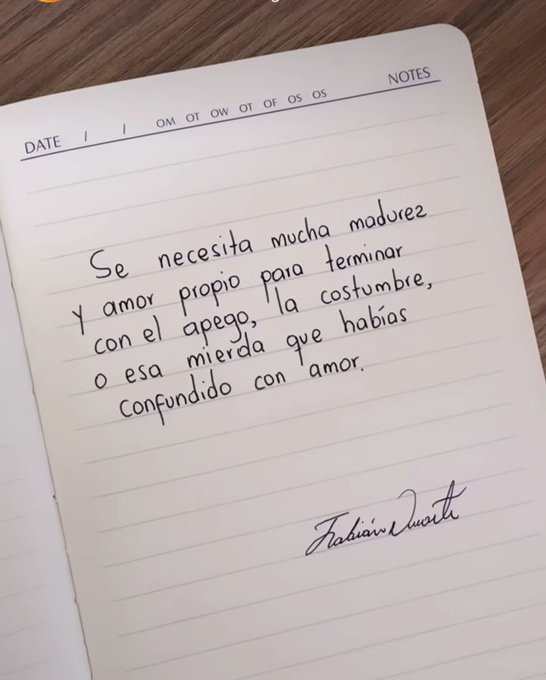 DATE / / OM OT OW OT OF OS OS NOTES
Se necesita mucha madurez
y amor propio para terminar
con el apego, la costumbre,
o esa mierda que habías
confundido con amor.
Fabián Duarte